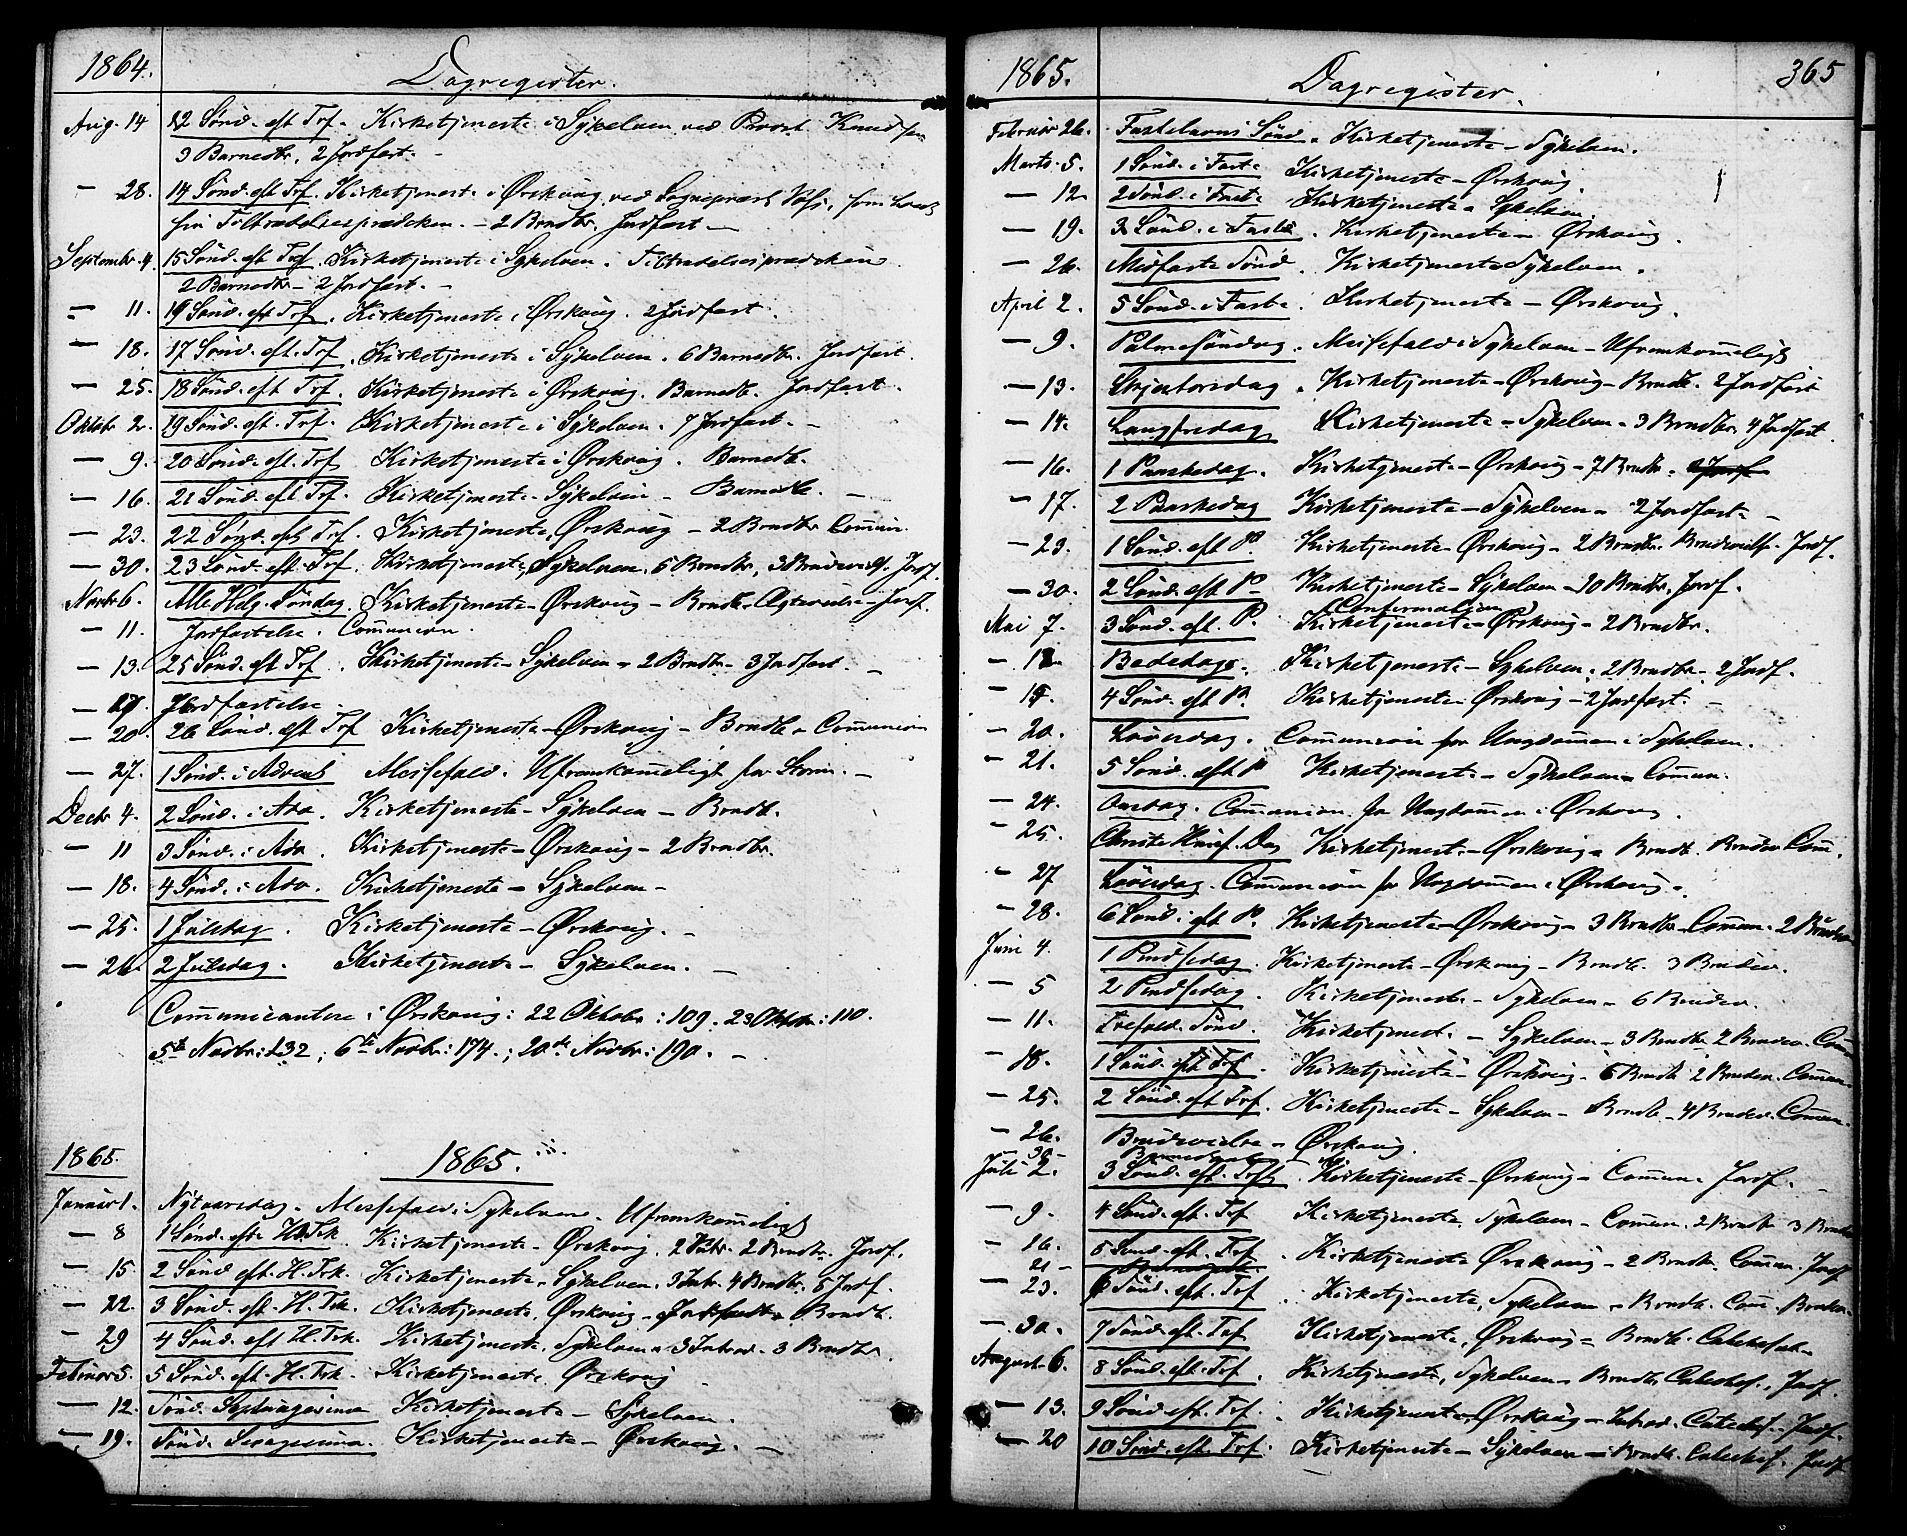 1864.
Dagregister.
Aug. 14 12 Sönd. eft Trf. Kirketjeneste i Sykelven ved Provst Knudsen
3 Barnedbr, 2 Jordfast. -
— 28. 14 Sönd. eft Trf. Kirketjeneste i Ørskoug ved Sognepræst som
sin Tiltrædelsesprædiken. - 2 Brndbr. Jordfast -
Septembr. 4. 15 Sönd. eft Trf. Kirketjeneste i Sykelven. Tiltrædelsesprædiken
2 Barnedbr - 2 Jordfast. -
— 11. 19 Sönd. eft Trf. Kirketjeneste i Ørskoug. 2 Jordfast.
— 18. 17 Sönd. eft. Trf. Kirketjeneste i Sykelven. 6 Barnedbr. Jordfast.
— 25. 18 Sönd. eft Trf. Kirketjeneste i Ørskoug. Barnedb. Jordfast.
Oktobr 2. 19 Sönd. eft. Trf. Kirketjeneste i Sykelven. 7 Jordfast. -
— 9. 20 Sönd. eft. Trf Kirketjeneste i Ørskoug. Barnedb.
— 16. 21 Sönd. eft Trf. Kirketjeneste - Sykelven - Barnedb. -
— 23. 22 Sönd. eft Trf. Kirketjeneste, Ørskoug - 2 Brndbr Comun.
— 30. 23 Sönd. eft. Trf. Kirketjeneste, Sykelven. 5 Brndbr, 3 Brudevielf. Jordf.
Novbr 6. Alle Helg. Söndag. Kirketjeneste - Ørskoug - Brndb. Jordf.
— 11. Jordfæstelse. Comunion.
— 13. 25 Sönd. eft Trf. Kirketjeneste - Sykelven - 2 Brndbr - 3 Jordfast. -
— 17. Jordfæstelse -
— 20 26 Sönd. eft Trf Kirketjeneste - Ørskoug - Brndb - Comunion
— 27. 1 Sönd. i Advent Messefald. Ufremkomeligt for Storm. -
Decbr 4. 2 Sönd. i Adv. Kirketjeneste - Sykelven - Brndb.
— 11 3 Sönd. i Adv. Kirketjeneste - Ørskoug - 2 Brndbr.
— 18. 4 Sönd. i Adv. Kirketjeneste - Sykelven -
— 25. 1 Juledag. Kirketjeneste - Ørskoug. -
— 26. 2 Juledag. Kirketjeneste - Sykelven. -
Comunicantere i Ørskoug: 22 Oktobr: 109. 23 Oktbr: 110.
5te Novbr: 132; 6te Novbr: 174.; 20de Novbr: 190. -
1865. 1865.
Januar 1. Nytaarsdag. Messefald i Sykelven. Ufremkomeligt
— 8 1 Sönd. efte H. Trk. Kirketjeneste - Ørskoug. 2 Intr. 2 Brndbr Jordf.
— 15 2 Sönd eft. H. Trk. Kirketjeneste. Sykelven. 3 Intr. 4 Brndbr. 5 Jordf.
— 22. 3 Sönd. eft. H. Trk. Kirketjeneste, Ørskoug - Jordfast. Brndb.
— 29 4 Sönd. eft H. Trk. Kirketjeneste, Sykelven - 3 Introd - 3 Brndbr.
Februar 5. 5 Sönd. eft. H. Trk. Kirketjeneste Ørskoug
— 12. Sönd. Septuagesima Kirketjeneste - Sykelven.
— 19. Sönd. Sexagesima. Kirketjeneste - Ørskoug. -
1865. 365
Dagregister.
Februar 26. Fastelavns Sönd. Kirketjeneste - Sykelven.
Marts 5. 1 Sönd. i Faste Kirketjeneste - Ørskoug.
— 12 2 Sönd. i Faste Kirketjeneste - Sykelven.
— 19. 3 Sönd. i Faste. Kirketjeneste - Ørskoug.
— 26. Midfaste Sönd. Kirketjeneste Sykelven.
April 2. 5 Sönd. i Faste. Kirketjeneste - Ørskoug.
— 9. Palmesöndag. Messefald i Sykelven - Ufremkomeligt
— 13. Skjærtorsdag. Kirketjeneste - Ørskoug - Brndb. 2 Jordfast
— 14. Langfredag Kirketjeneste - Sykelven - 3 Brndbr 4 Jordfast
— 16. 1 Paaskedag. Kirketjeneste - Ørskoug - 7 Brndbr. 2 Jordf
— 17. 2 Paaskedag Kirketjeneste - Sykelven - 2 Jordfast -
— 23. 1 Sönd. eft P. Kirketjeneste - Ørskoug - 2 Brndbr. Brudevielf. Jordf.
— 30. 2 Sönd. eft P - Kirketjeneste - Sykelven - 10 Brndbr. Jordf.
Confirmation
Mai 7. 3 Sönd. eft. P. Kirketjeneste - Ørskoug - 2 Brndbr.
— 12 Bededags. Kirketjeneste - Sykelven. 2 Brndbr - 2 Jordf.
— 14. 4 Sönd. eft P. Kirketjeneste - Ørskoug - 2 Jordfast. -
— 20. Löverdag. Comunion for Ungdommen i Sykelven.
— 21. 5 Sönd. eft P Kirketjeneste - Sykelven - Comun.
— 24. Onsdag. Comunion for Ungdommen i Ørskoug.
— 25. Christi Himf. Dag Kirketjenest - Ørskoug - Brndb. Brudev. Com.
— 27 Löverdag. Comunion for Ungdommen i Ørskoug.
— 28. 6 Sönd. eft P. Kirketjeneste - Ørskoug - 3 Brndbr - Comun. 2 Brudev
Juni 4. 1 Pindsedag. Kirketjeneste - Ørskoug - Brndb. 3 Brudev.
— 5 2 Pindsedag. Kirketjeneste - Sykelven - 6 Brudev.
— 11. Trefold. Sönd. Kirketjenest. - Sykelven - 3 Brndbr 2 Brudev. Com
— 18. 1 Sönd. eft Trf. Kirketjeneste - Ørskoug - 5 Brndb 2 Brudev. Comun.
— 25. 2 Sönd. eft Trf. Kirketjeneste - Sykelven - Brndb - 4 Brudev. Comun.
— 26. Brudevielse - Ørskoug.
— 30 -
Juli 2. 3 Sönd. eft. Trf. Kirketjeneste - Ørskoug - Comun. Jordf. -
— 9. 4 Sönd. eft. Trf Kirketjeneste, Sykelven - Comun. 2 Brndbr 3 Brudev
— 16. 5 Sönd. eft. Trf. Kirketjeneste Ørskoug - 2 Brndb. Comun. Jordf
21 -
— 23. 6 Sönd. eft. Trf. Kirketjeneste, Sykelven - Brndb. Com. Brudev.
— 30. 7 Sönd. eft. Trf Kirketjeneste, Ørskoug - Brndb. Catechesat.
August 6. 8 Sönd. eft. Trf. Kirketjeneste, Sykelven - Brndbr Catechef., Jordf.
— 13. 9 Sönd. eft. Trf. Kirketjeneste - Ørskoug - Introd. Catechef. Jordf.
— 20 10 Sönd. eft. Trf. Kirketjeneste - Sykelven - Brndb. Catechef. Jordf